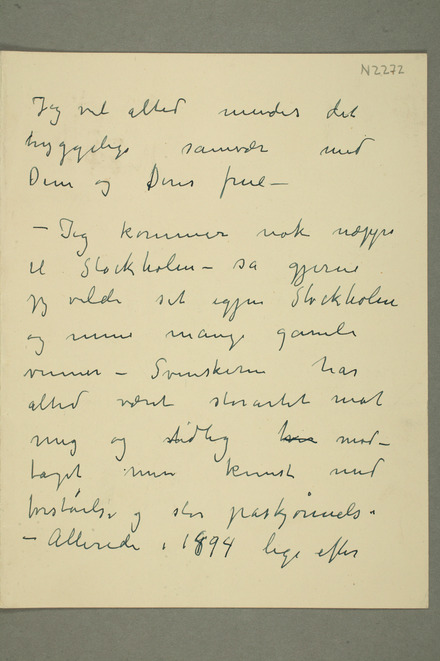 N2272
Jeg vil altid mindes det
hyggelige samvær med
Dem og Deres frue –
– Jeg kommer nok næppe
til Stockholm – så gjerne
jeg vilde set igjen Stockholm
og mine mange gamle
venner – Svenskerne har
altid været storartet mot
mig og tidlig mod-
taget min kunst med
forståelse og stor påskjønnelse
– Allerede i 1894 lige efter